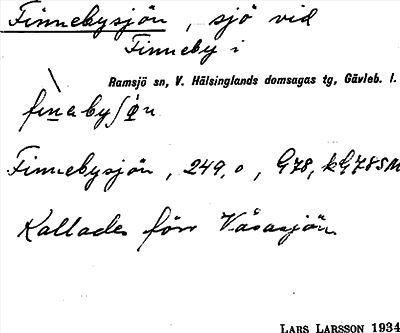 Finnebysjön, sjö vid
Finneby i
Ramsjö sn, V. Hälsinglands domsagas tg, Gävleb. l.
Finnebysjön, 249,0, G78,
Kallades förr Våsasjön
LARS LARSSON 1934